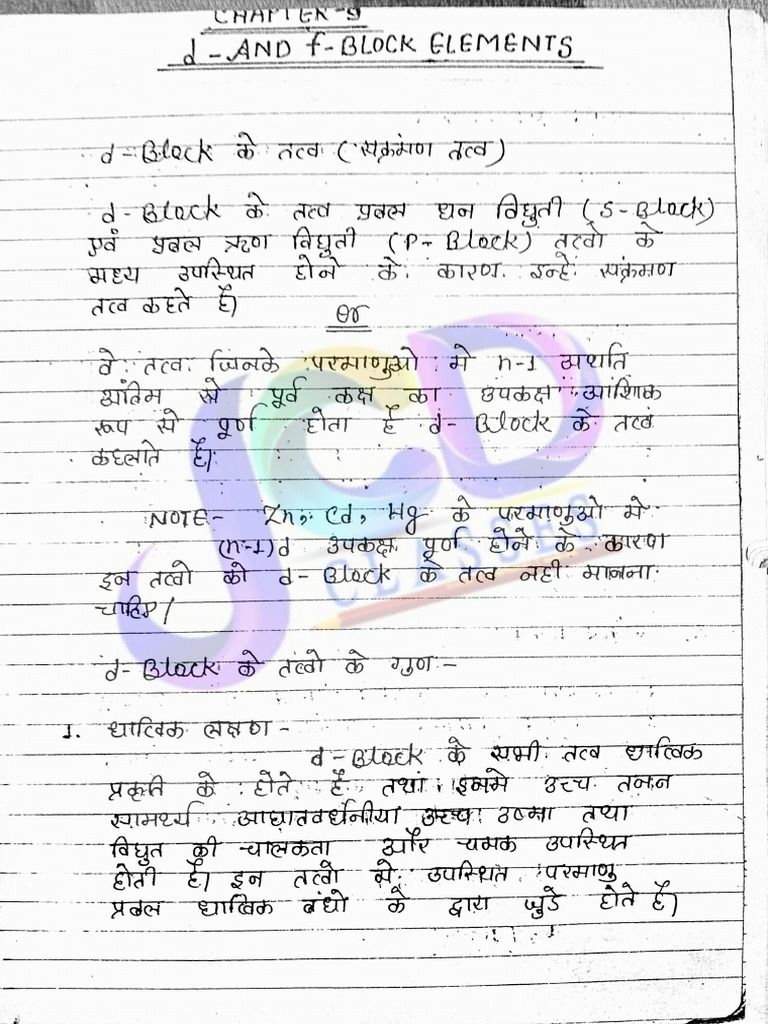 CHAPTER-9
d-AND f-BLOCK ELEMENTS
d-Block के तत्व (सक्रंमण तत्व)
d-Block के तत्व प्रबल धन विधुती (S-Block)
एवं प्रबल ऋण विधुती (P-Block) तत्वो के
मध्य उपस्थित होने के कारण इन्हे संक्रमण
तत्व कहते है।
Or
वे तत्व जिनके परमाणुओ मे n-1 अर्थात
अंतिम से पूर्व कक्ष का उपकक्ष आंशिक
रूप से पूर्ण होता है d-Block के तत्व
कहलाते है।
NOTE- Zn, Cd, Hg के परमाणुओ मे
(n-1)d उपकक्ष पूर्ण होने के कारण
इन तत्वो को d-Block के तत्व नही मानना
चाहिए।
JCD
CLASSES
d-Block के तत्वो के गुण-
1. धात्विक लक्षण -
d-Block के सभी तत्व धात्विक
प्रकृति के होते है तथा इनमे उच्च तनन
सामर्थ्य आघातवर्धनीया उच्च उष्मा तथा
विधुत की चालकता और चमक उपस्थित
होती है। इन तत्वो मे उपस्थित परमाणु
प्रबल धात्विक बंधो के द्वारा जुडे होते है।